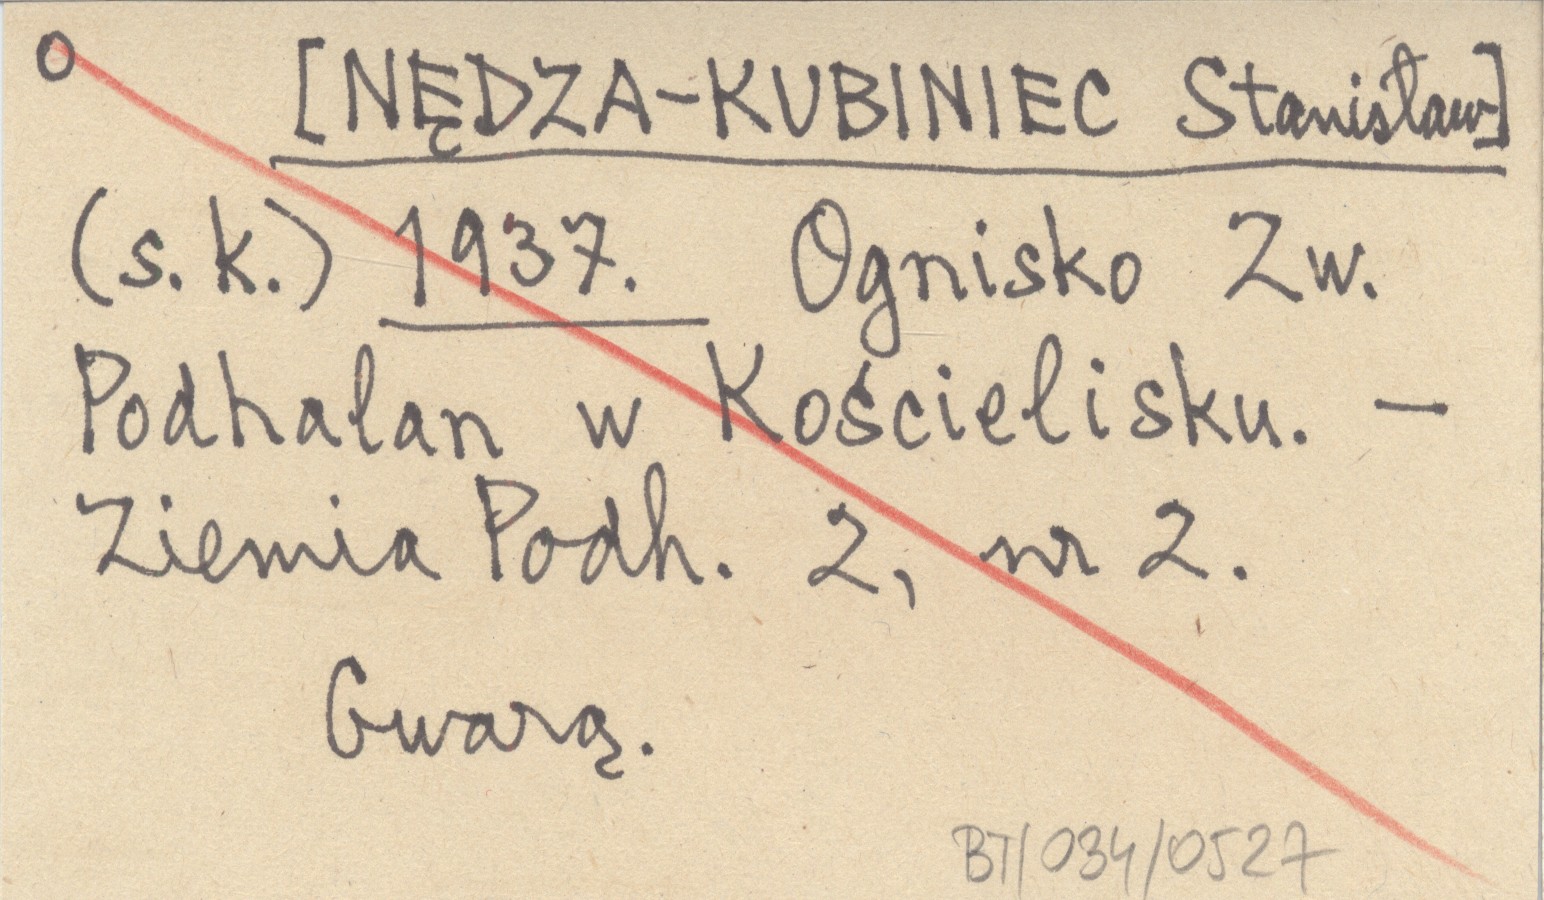 o [NĘDZA-KUBINIEC Stanisław]
(s. k.) 1937. Ognisko Zw.
Podhalan w Kościelisku. —
Ziemia Podh. 2, nr 2.
Gwarą.
BT/034/0527